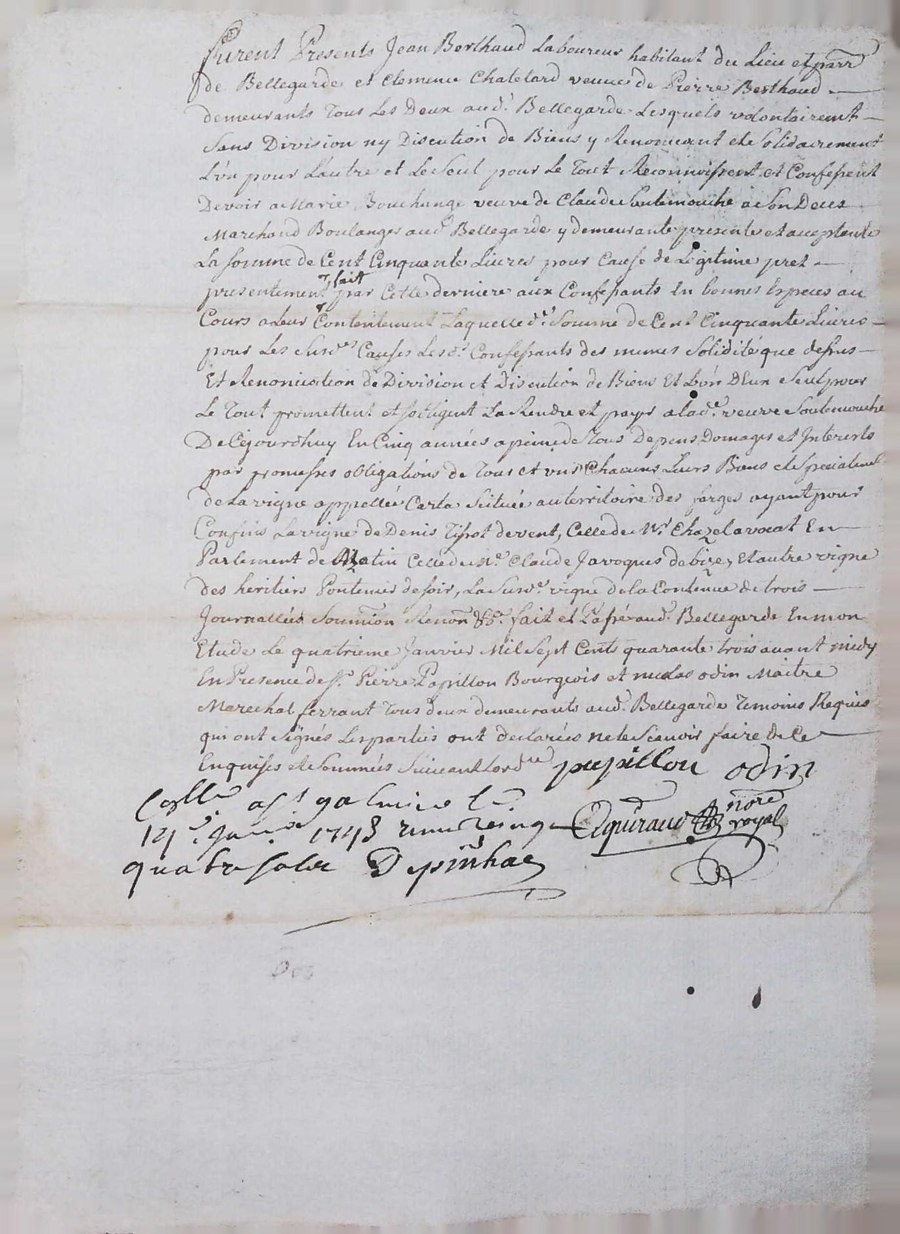 furent Presents Jean Berthaud Laboureur habitant du Lieu et parr
de Bellegarde et Clemence Chatelard veuve de Pierre Berthaud
demeurants Tous Les Deux aud. Bellegarde Lesquels volontairemt
Sans Division ny Discution de Biens y Renoncant et Solidairement
L'un pour Lautre et Le Seul pour Le Tout Reconnoissent et Confessent
Devoir a Marie Bouchange veuve de Claude Soulemouche a Son Deces
Marchand Boulanger aud. Bellegarde y demeurante presente et acceptante
La Somme de Cent Cinquante Livres pour Cause de Legitime pret
presentement fait par Cette derniere aux Confessants En bonnes Especes au
Cours a Leur Contentement Laquelle de. Somme de Cent Cinquante Livres
pour Les Susdes Causes Les ds. Confessants des memes Solidité que dessus
Et Renonciation de Division et Discution de Biens Et L'un D'Eux Seul pour
Le Tout promettent et sobligent La Rendre et payer a lade. veuve Soulemouche
De Cejourdhuy En Cinq années a peine de Tous Depens Domages et Interests
par promesses obligations de Tous et uns Chacuns Leurs Biens et Specialemt
de La vigne appellée Carta Scituée au territoire des farges ayant pour
Confins La vigne de Denis Tissot de vent, Celle de Mr. Chazel avocat En
Parlement de Matin Celle de Me. Claude Javoques de bize, Et autre vigne
des heritiers Pontenis de soir, La Susde. vigne de la Contenue de trois
Journallées Soumion Renon &c. fait et Passé aud. Bellegarde En mon
Etude Le quatrieme Janvier Mil Sept Cents quarante trois avant midy
En Presence de Sr. Pierre Papillon Bourgeois et nicolas odin Maitre
Marechal ferrant Tous deux demeurants aud. Bellegarde Temoins Requis
qui ont Signés Les parties ont declarées ne le Scavoir faire de Ce
Enquises et Sommées Suivant Lordce
papillon odin
Collé a St galmier le
14e. Janer 1743
quatre Solz Depinhac
notre royal